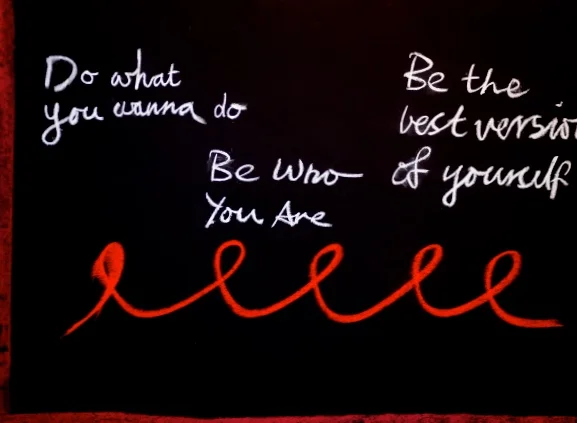 Do what
you wanna do
Be Who
You Are
Be the
best version
of yourself